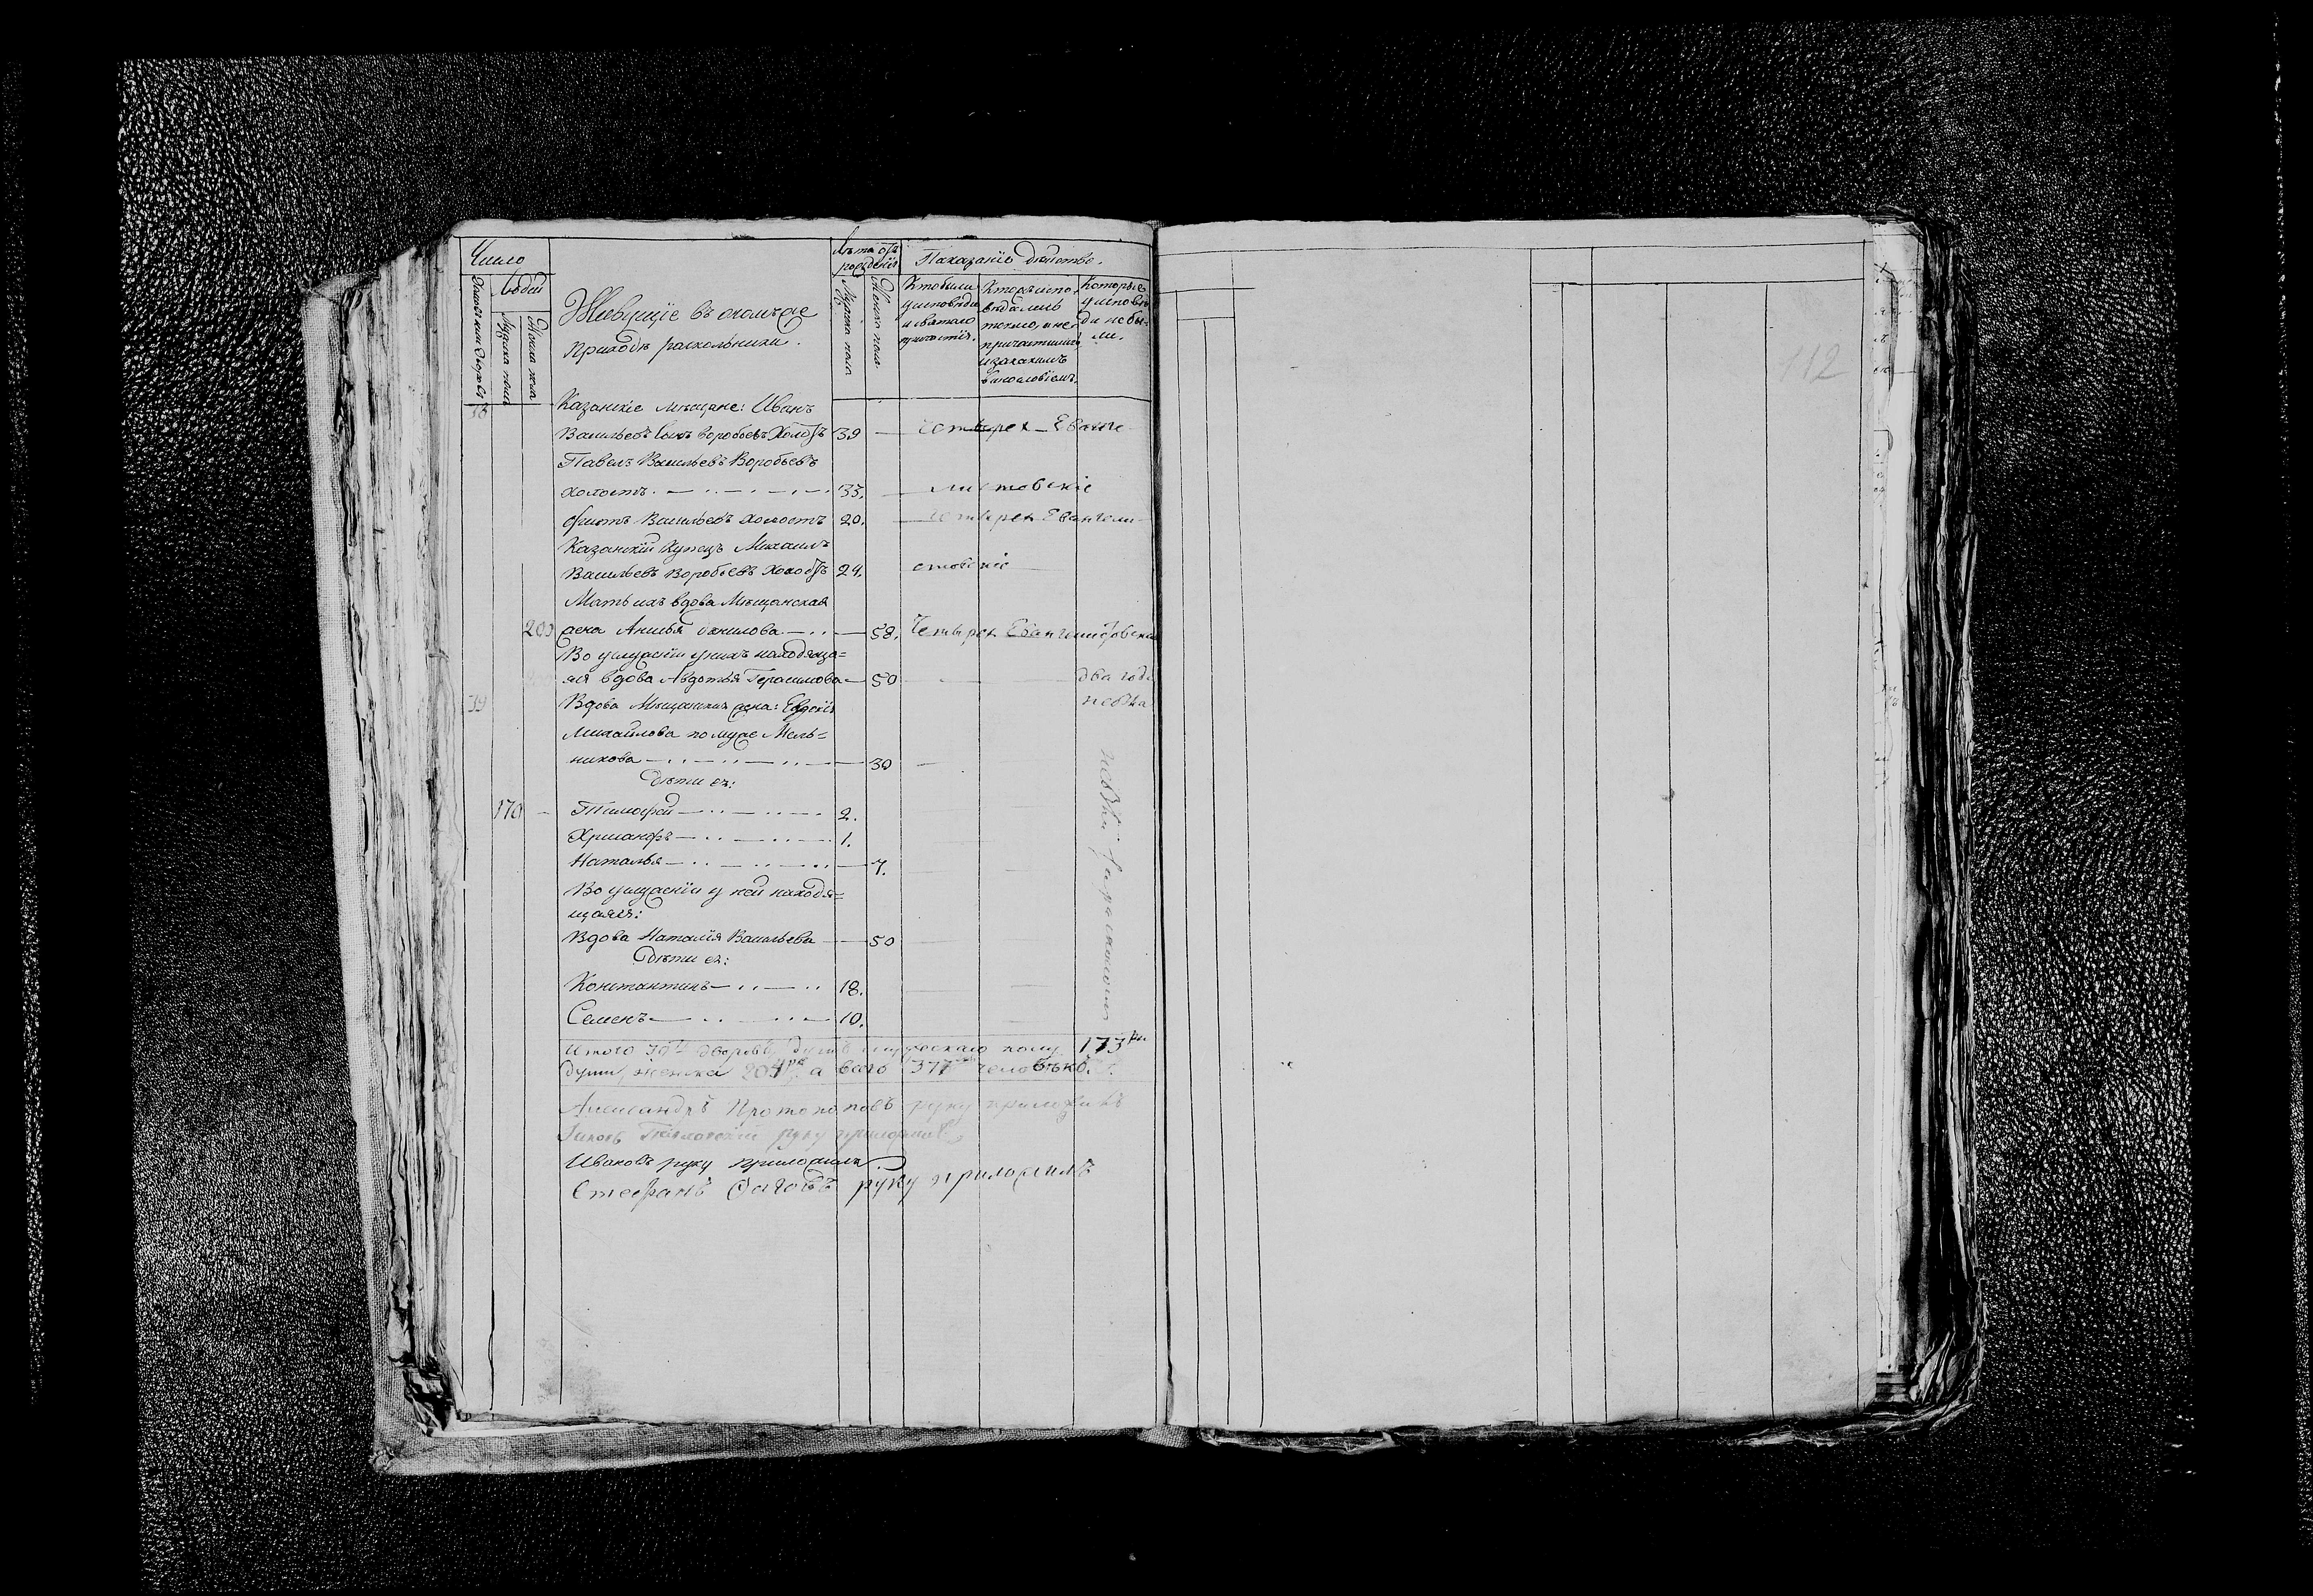 Число
Людей
Мужеска пола
Женска пола
Живущіе въ ономъ же
приходѣ раскольники.
Лѣта отъ
рожденія
Мужеска пола
Женска пола
Показаніе дѣйства.
Кто были
у исповѣди
и святаго
причастія.
Кто исповѣдались
токмо, а не
причастились
и за какимъ
винословіемъ.
Которые
у исповѣ
ди не бы-
ли.
112
38
Казанскіе мѣщане: Иванъ
Васильевъ сынъ Воробьевъ Холостъ 39 Четырех Еванге
Павелъ Васильевъ Воробьевъ
холостъ. 33. листовскіе
Васильевъ холостъ 20. Четырех Евангели
Казанскій Купецъ Михаилъ
Васильевъ Воробьевъ Холостъ 24. стовскіе
Мать ихъ вдова Мѣщанская
203 жена Анисья Данилова 58. Четырех Евангелистовско
Во услуженіи у нихъ находяща=
яся вдова Авдотья Герасимова 50 два года
39 Вдова Мѣщанская жена: Евдокія
Михайлова по мужѣ Мель=
никова 30
Дѣти ея:
170 Тимофей 2.
Хрисанфъ 1.
Наталья 7.
Во услуженіи у ней находя=
щаяся:
Вдова Наталія Васильева 50
Дѣти ея:
Константинъ 18.
Семенъ 10.
Итого 39 дворовъ душъ мужескаго полу 173
души, женска 204 а всего 377 человѣкъ.
Александръ Протопоповъ руку приложилъ
руку приложилъ
Ивановъ руку приложилъ
Стефанъ руку приложилъ